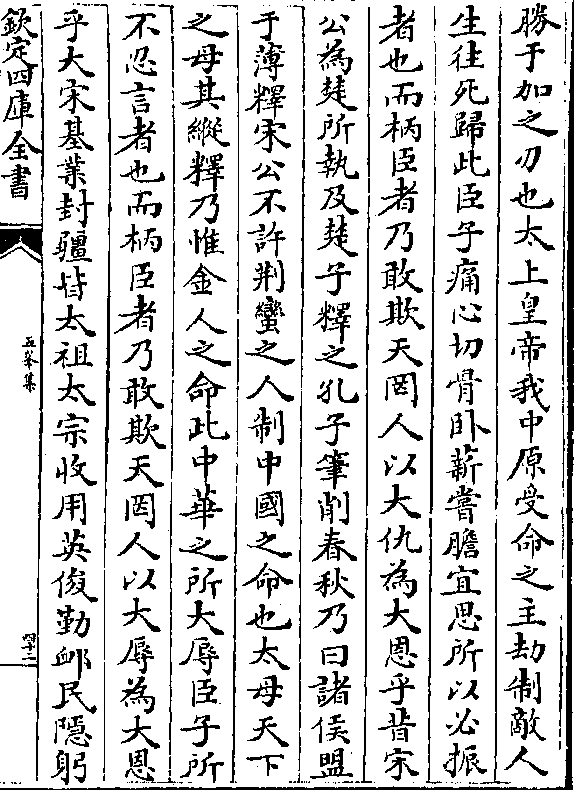 勝于加之刃也太上皇帝我中原受命之主劫制敵人
生往死歸此臣子痛心切骨卧薪嘗膽宜思所以必振
者也而柄臣者乃敢欺天罔人以大仇為大恩乎昔宋
公為楚所執及楚子釋之孔子筆削春秋乃曰諸侯盟
于薄釋宋公不許荆蠻之人制中國之命也太母天下
之母其縱釋乃惟金人之命此中華之所大辱臣子所
不忍言者也而柄臣者乃敢欺天罔人以大辱為大恩
乎大宋基業封疆皆太祖太宗收用英俊勤卹民隱躬
欽定四庫全書
五峯集
四十二